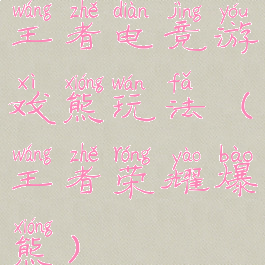 wáng zhě diàn jìng yóu
王者电竞游
xì xióng wán fǎ
戏熊玩法（
wáng zhě róng yào bào
王者荣耀爆
xióng
熊）